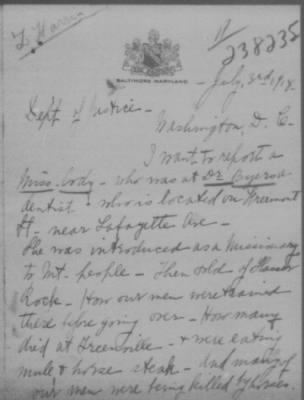 11
238235
BALTIMORE, MARYLAND
July, 3rd, 1918.
Dept of Justice -
Washington, D. C.
I want to report a
Miss. Cody - who was at Dr
dentist - who is located on Freemont
St - near Lafayette Ave -
She was introduced as a Missionary
to Mt. people - Then told of
Rock - How our men were trained
there before going over - How many
died at Greenville - & were eating
mule & horse steak - and many of
our men were being killed by